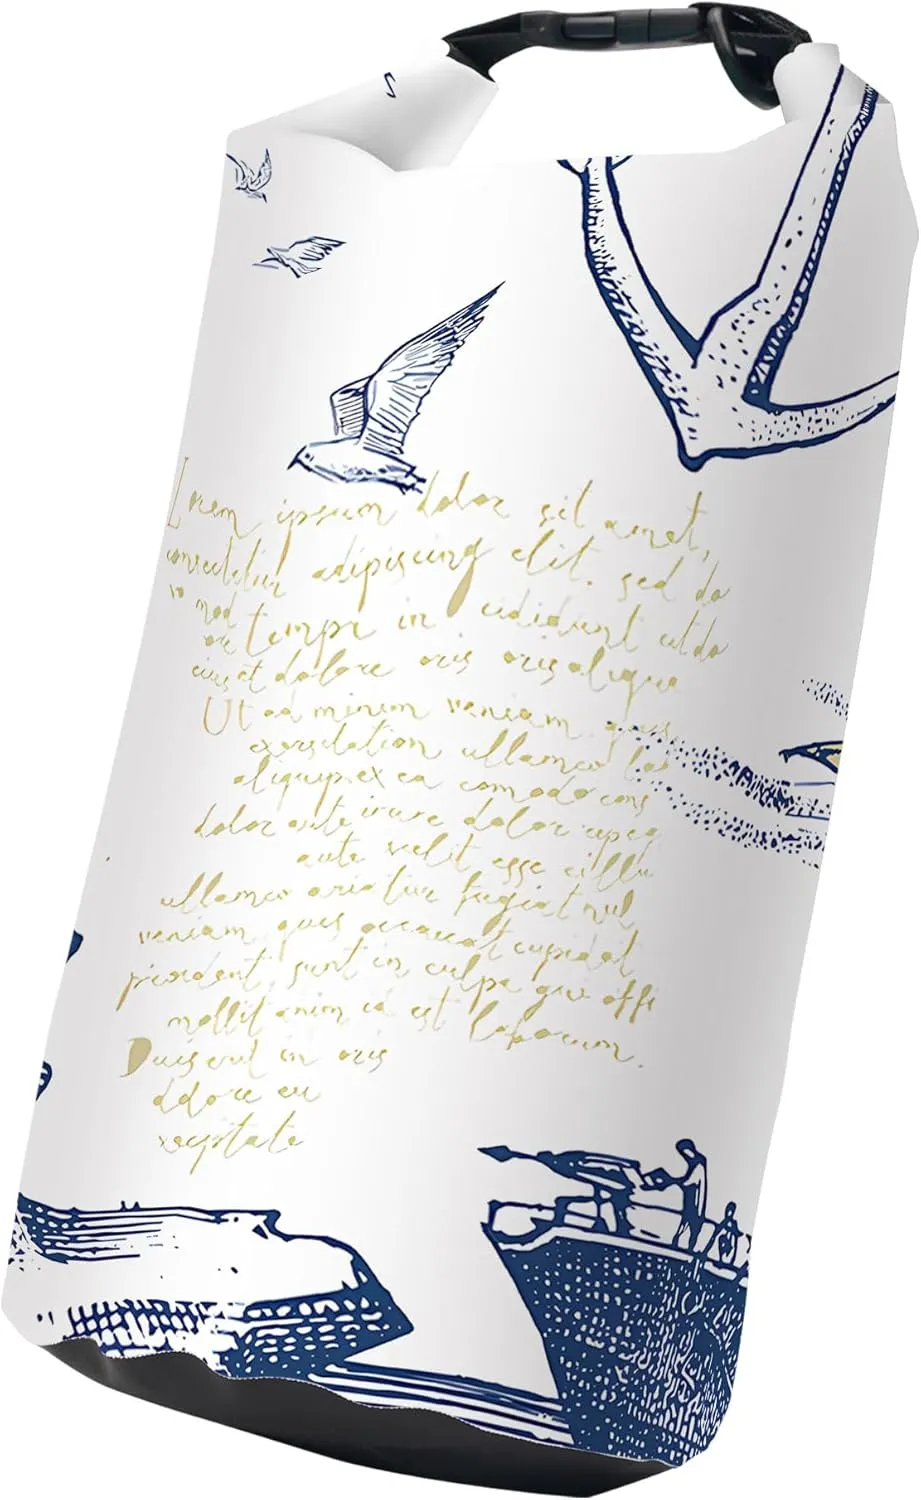 Lorem ipsum dolor sit amet,
consectetur adipiscing elit. sed do
mod tempr in cididunt utdo
eius et dolore oris oris aliqua
Ut ad minim veniam ques
exercitation ullamco
aliquip.ex ea comodo cons
dolor aute irure dolor
aute velit esse cillu
ullamco oria tur fugiat nul
veniam, ques occaecat cupidat
proident, sunt in culpa qui offi
mollit anim id est laborum.
Duis in oris
ddore eu